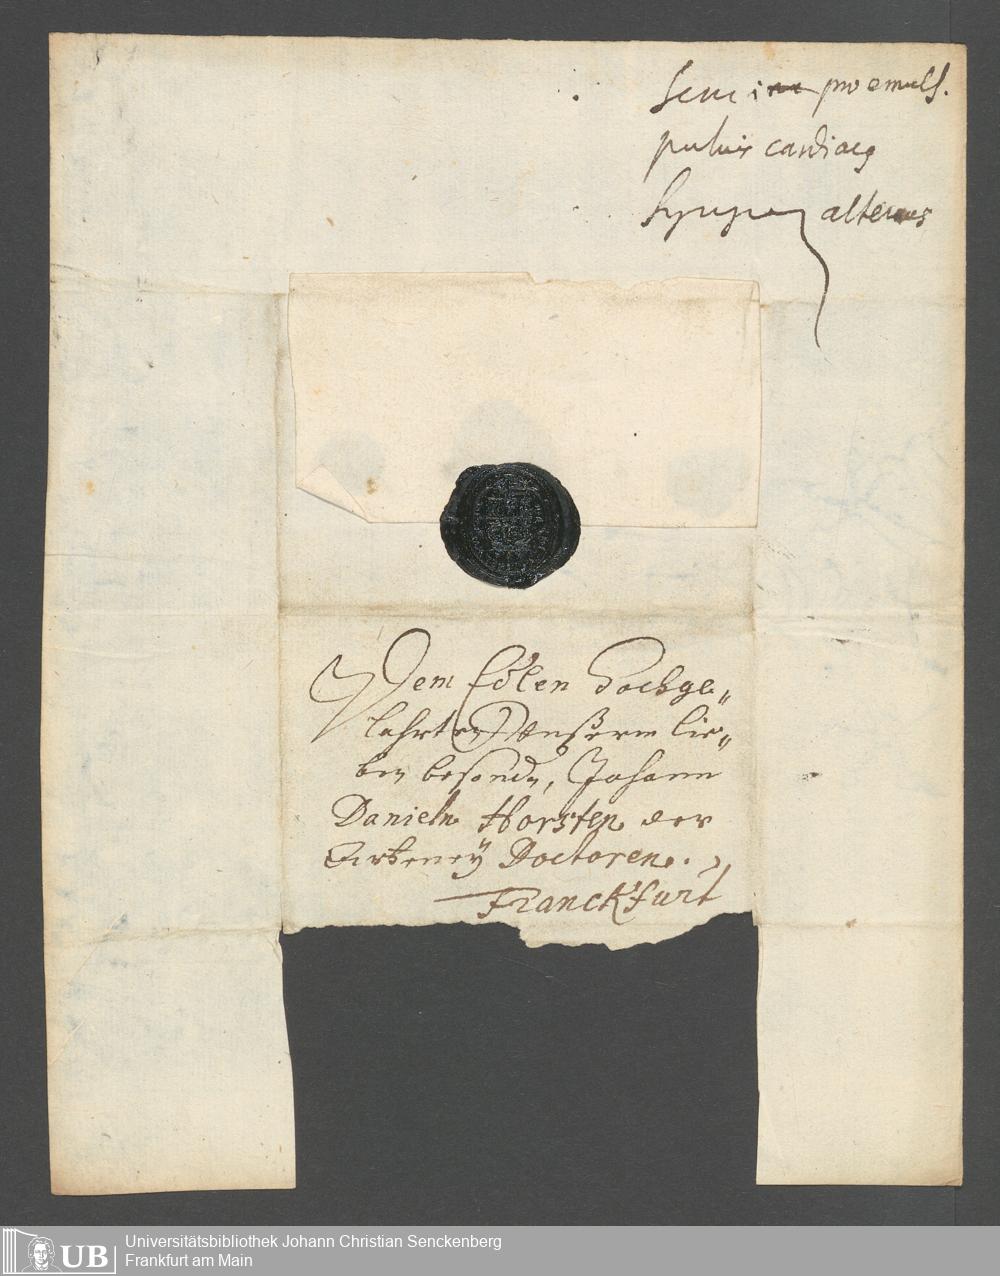 Semi pro emuls.
pulvis cardiacq
Syrupq alterans
Dem Edlen Hochge„
lahrten Unßerm lie„
ben besondn, Johann
Danieln Horsten der
Artzeney Doctoren.
Franckfurt
UB
Universitätsbibliothek Johann Christian Senckenberg
Frankfurt am Main